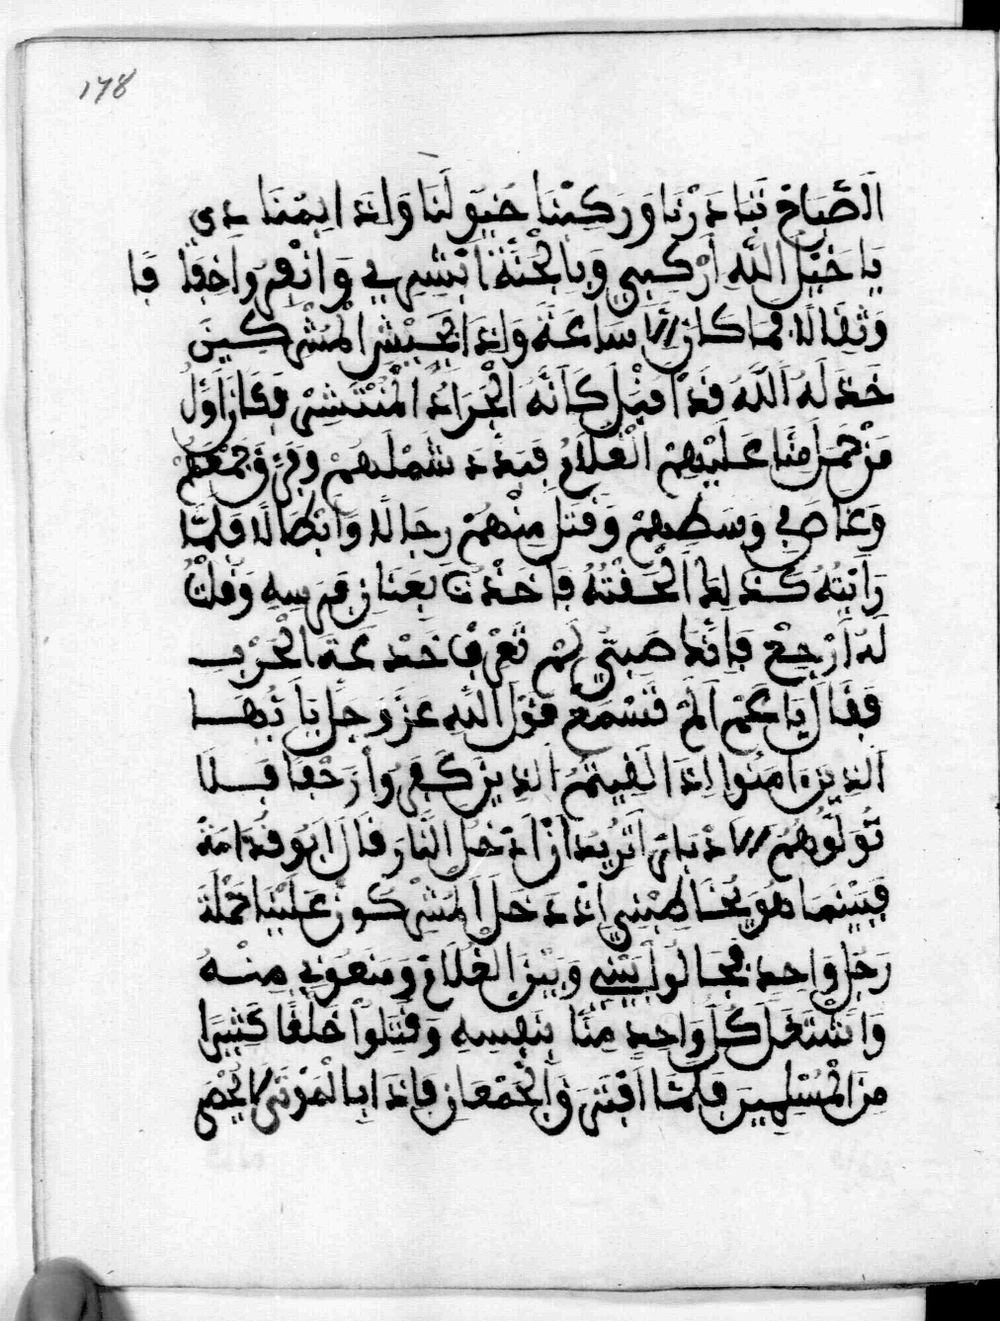 178
الصَّبَاحُ تَبَادَرْنَا وَرَكِبْنَا خُيُولَنَا وَاِذَا بِمُنَادِي
يَا خَيْلَ اللَّهِ اَرْكَبِي وَبِالْجَنَّةِ اَبْشِرِي وَانْفِرُوا خِفَافَا
وَثِقَالَا فَمَا كَانَ اِلَّا سَاعَةً وَاِذَا بِجَيْشِ الْمُشْرِكِينَ
خَذَلَهُ اللَّهُ قَدْ اَقْبَلَ كَاَنَّهُ الْجَرَادُ الْمُنْتَشِرْ فَكَانَ اَوَّلُ
مَنْ حَمَلَ مِنَّا عَلَيْهِمْ الْغُلَامُ فَبَدَّدَ شَمْلَهُمْ وَفَرَّقَ جَمْعَهُمْ
وَغَاصَ فِي وَسَطِهِمْ وَقَتَلَ مِنْهُمْ رِجَالَا وَاَبْطَالَا فَلَمَّا
رَاَيْتُهُ كَذَلِكَ اَلْحَقْتُهُ فَاَخَذْتُ بِعَنَانِ فَرَسِهِ وَقُلْتُ
لَهُ اَرْجِعْ فَاَنْتَ صَبِيٌّ لَمْ تَعْرِفْ خَدْعَةَ الْحَرْبِ
فَقَالَ يَا عَمْ اَلَمْ تَسْمَعْ قَوْلَ اللَّهِ عَزَّ وَجَلَّ يَا اَيُّهَا
الَّذِينَ ءَامَنُوا اِذَا لَقِيتُمُ الَّذِينَ كَفَرُوا زَحْفًا فَلَا
تُوَلُّوهُمُ الْاَدْبَارَ اَتُرِيدُ اَنْ اَدْخُلَ النَّارَ قَالَ اَبُو قُدَامَةَ
فَبَيْنَمَا هُوَ يُخَاطِبُنِي اِذْ دَخَلَ الْمُشْرِكُونَ عَلَيْنَا حَمْلَةَ
رَجُلٍ وَاحِدٍ فَحَالُوا بَيْنِي وَبَيْنَ الْغُلَامِ وَمَنَعُونِي مِنْهُ
وَاَشْتَغَلَ كُلُّ وَاحِدٍ مِنَّا بِنَفْسِهِ وَقُتِلُوا خَلْقًا كَثِيرًا
مِنَ الْمُسْلِمِينَ فَلَمَّا اَفْتَرَقَ الْجَمْعَانِ فَاِذَا بِالْمَوْتَى لَا يُحْصَى